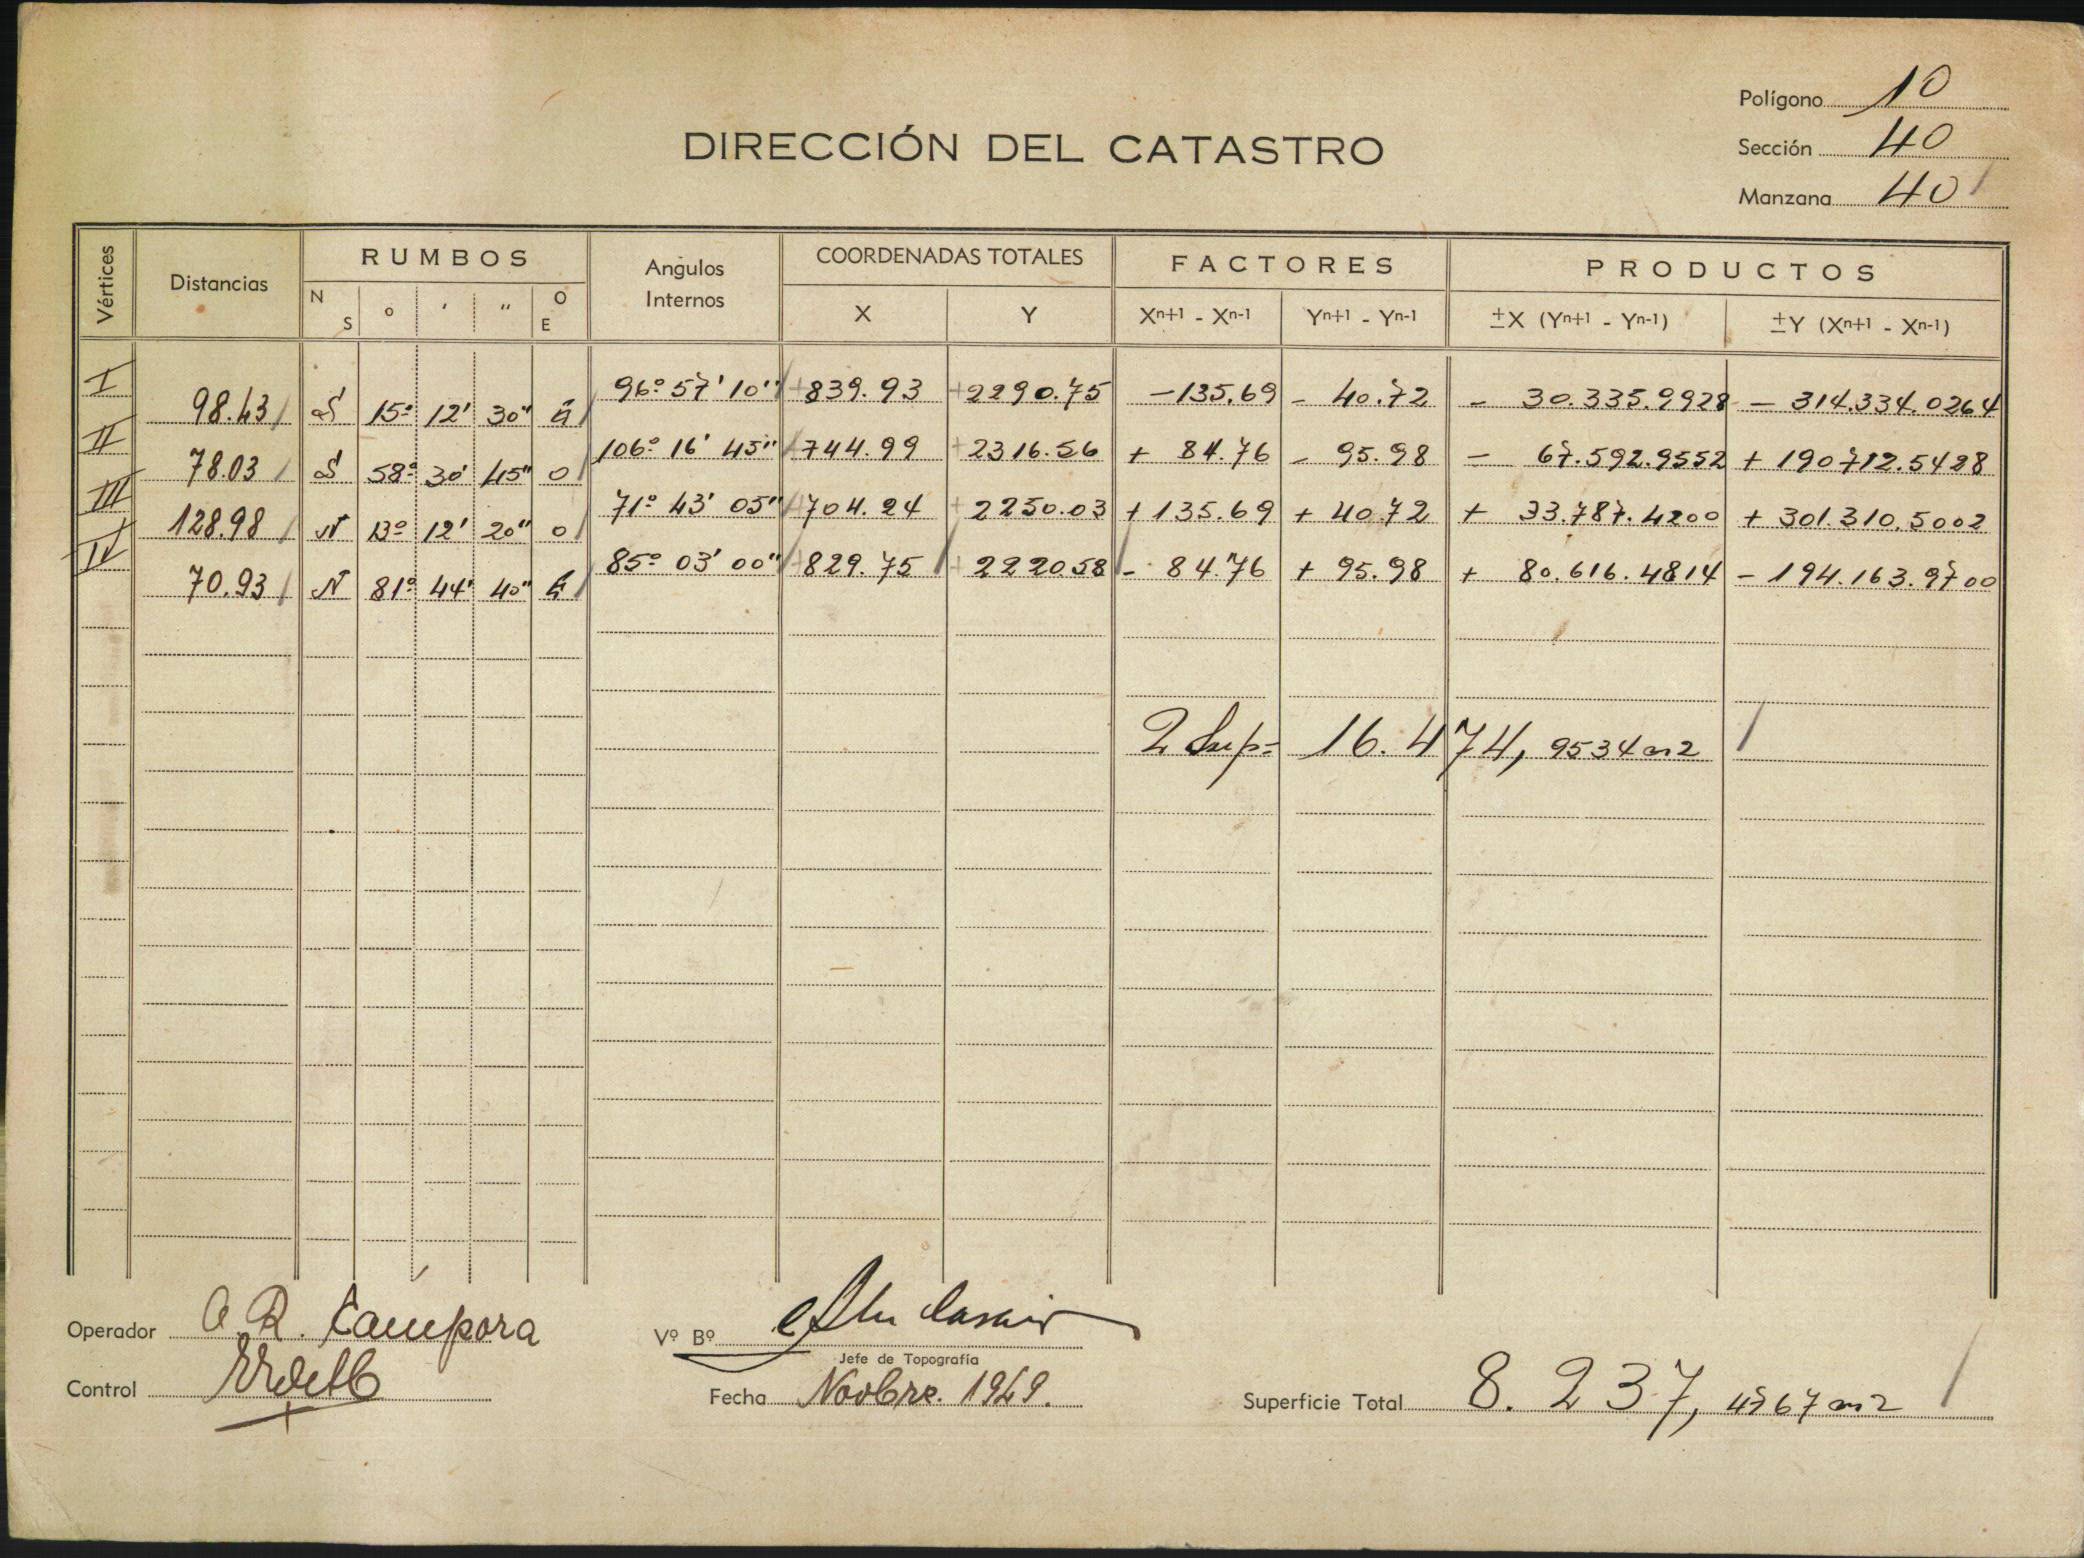 Polígono 10
DIRECCIÓN DEL CATASTRO
Sección 40
Manzana 40
Vértices Distancias RUMBOS Angulos Internos COORDENADAS TOTALES FACTORES PRODUCTOS
N S ° ' " O E X Y Xn+1 - Xn-1 Yn+1 - Yn-1 ±X (Yn+1 - Yn-1) ±Y (Xn+1 - Xn-1)
I 96° 57' 10" +839.93 +2290.75 -135.69 - 40.72 - 30.335.9928 - 314.334.0264
98.43 S 15° 12' 30" E
II 106° 16' 45" 744.99 +2316.56 + 84.76 - 95.98 - 67.592.9552 + 190712.5428
78.03 S 58° 30' 45" O
III 71° 43' 05" +704.24 +2250.03 + 135.69 + 40.72 + 33.787.4200 + 301.310.5002
128.98 N 13° 12' 20" O
IV 85° 03' 00" +829.75 +2220.58 - 84.76 + 95.98 + 80.616.4814 - 194.163.9700
70.93 N 81° 44' 40" E
2 Sup= 16.474,9534 m2
Operador A. R. Cámpora
Vº Bº
Jefe de Topografía
Control
Fecha Novbre. 1949.
Superficie Total 8.237,4767 m2